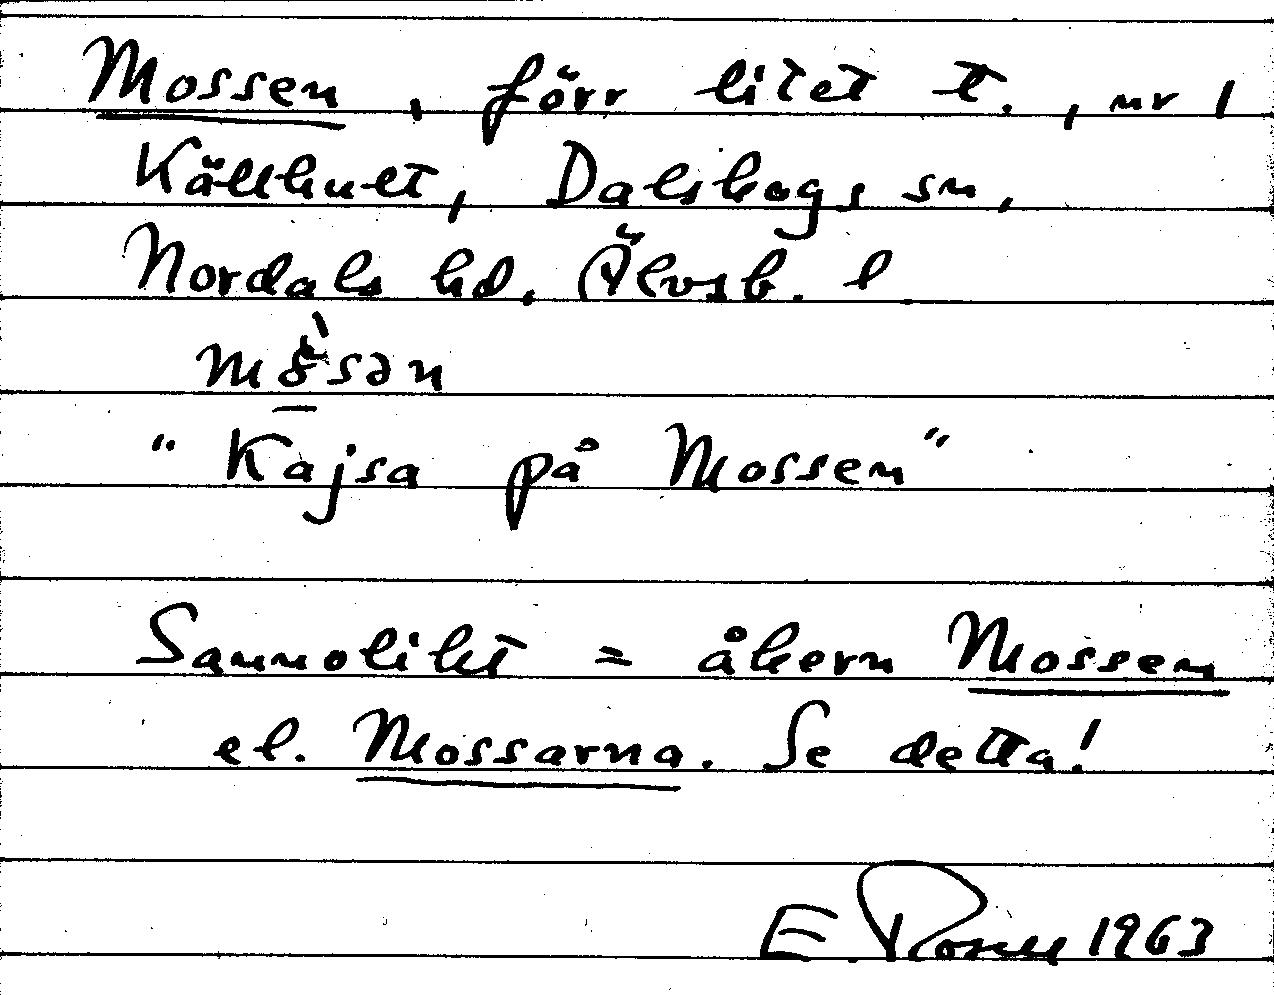 Mossen, förr litet t., nr 1
Källhult, Dalskogs sn,
Nordals hd, Älvsb. l
"Kajsa på Mossen"
Sannolikt = åkern Mossen
el. Mossarna. Se detta!
E. 1963